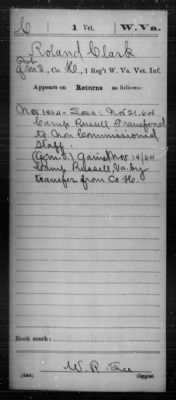 C | 1 Vet. | W.Va.
Roland Clark
Co. H, 1 Reg't W. Va. Vet. Inf.
Appears on Returns as follows:
Nov 1864 - Loss: Nov 21.64
Camp Russell Transferred
to Non Commissioned
Staff.
Gained Nov. 19/64
Camp Russell, Va. by
transfer from Co H.
Book mark:
Copyist.